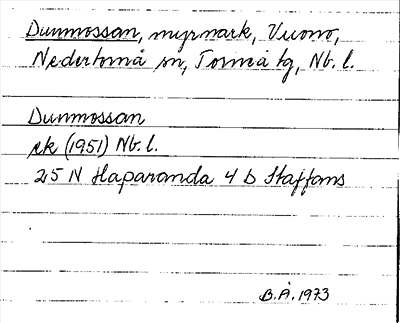 Dunmossan, myrmark, Vuono,
Nedertorneå sn, Torneå tg, Nb. l.
Dunmossan
ek (1951) Nb. l.
25 N Haparanda 4 b Staffans
B.Å. 1973